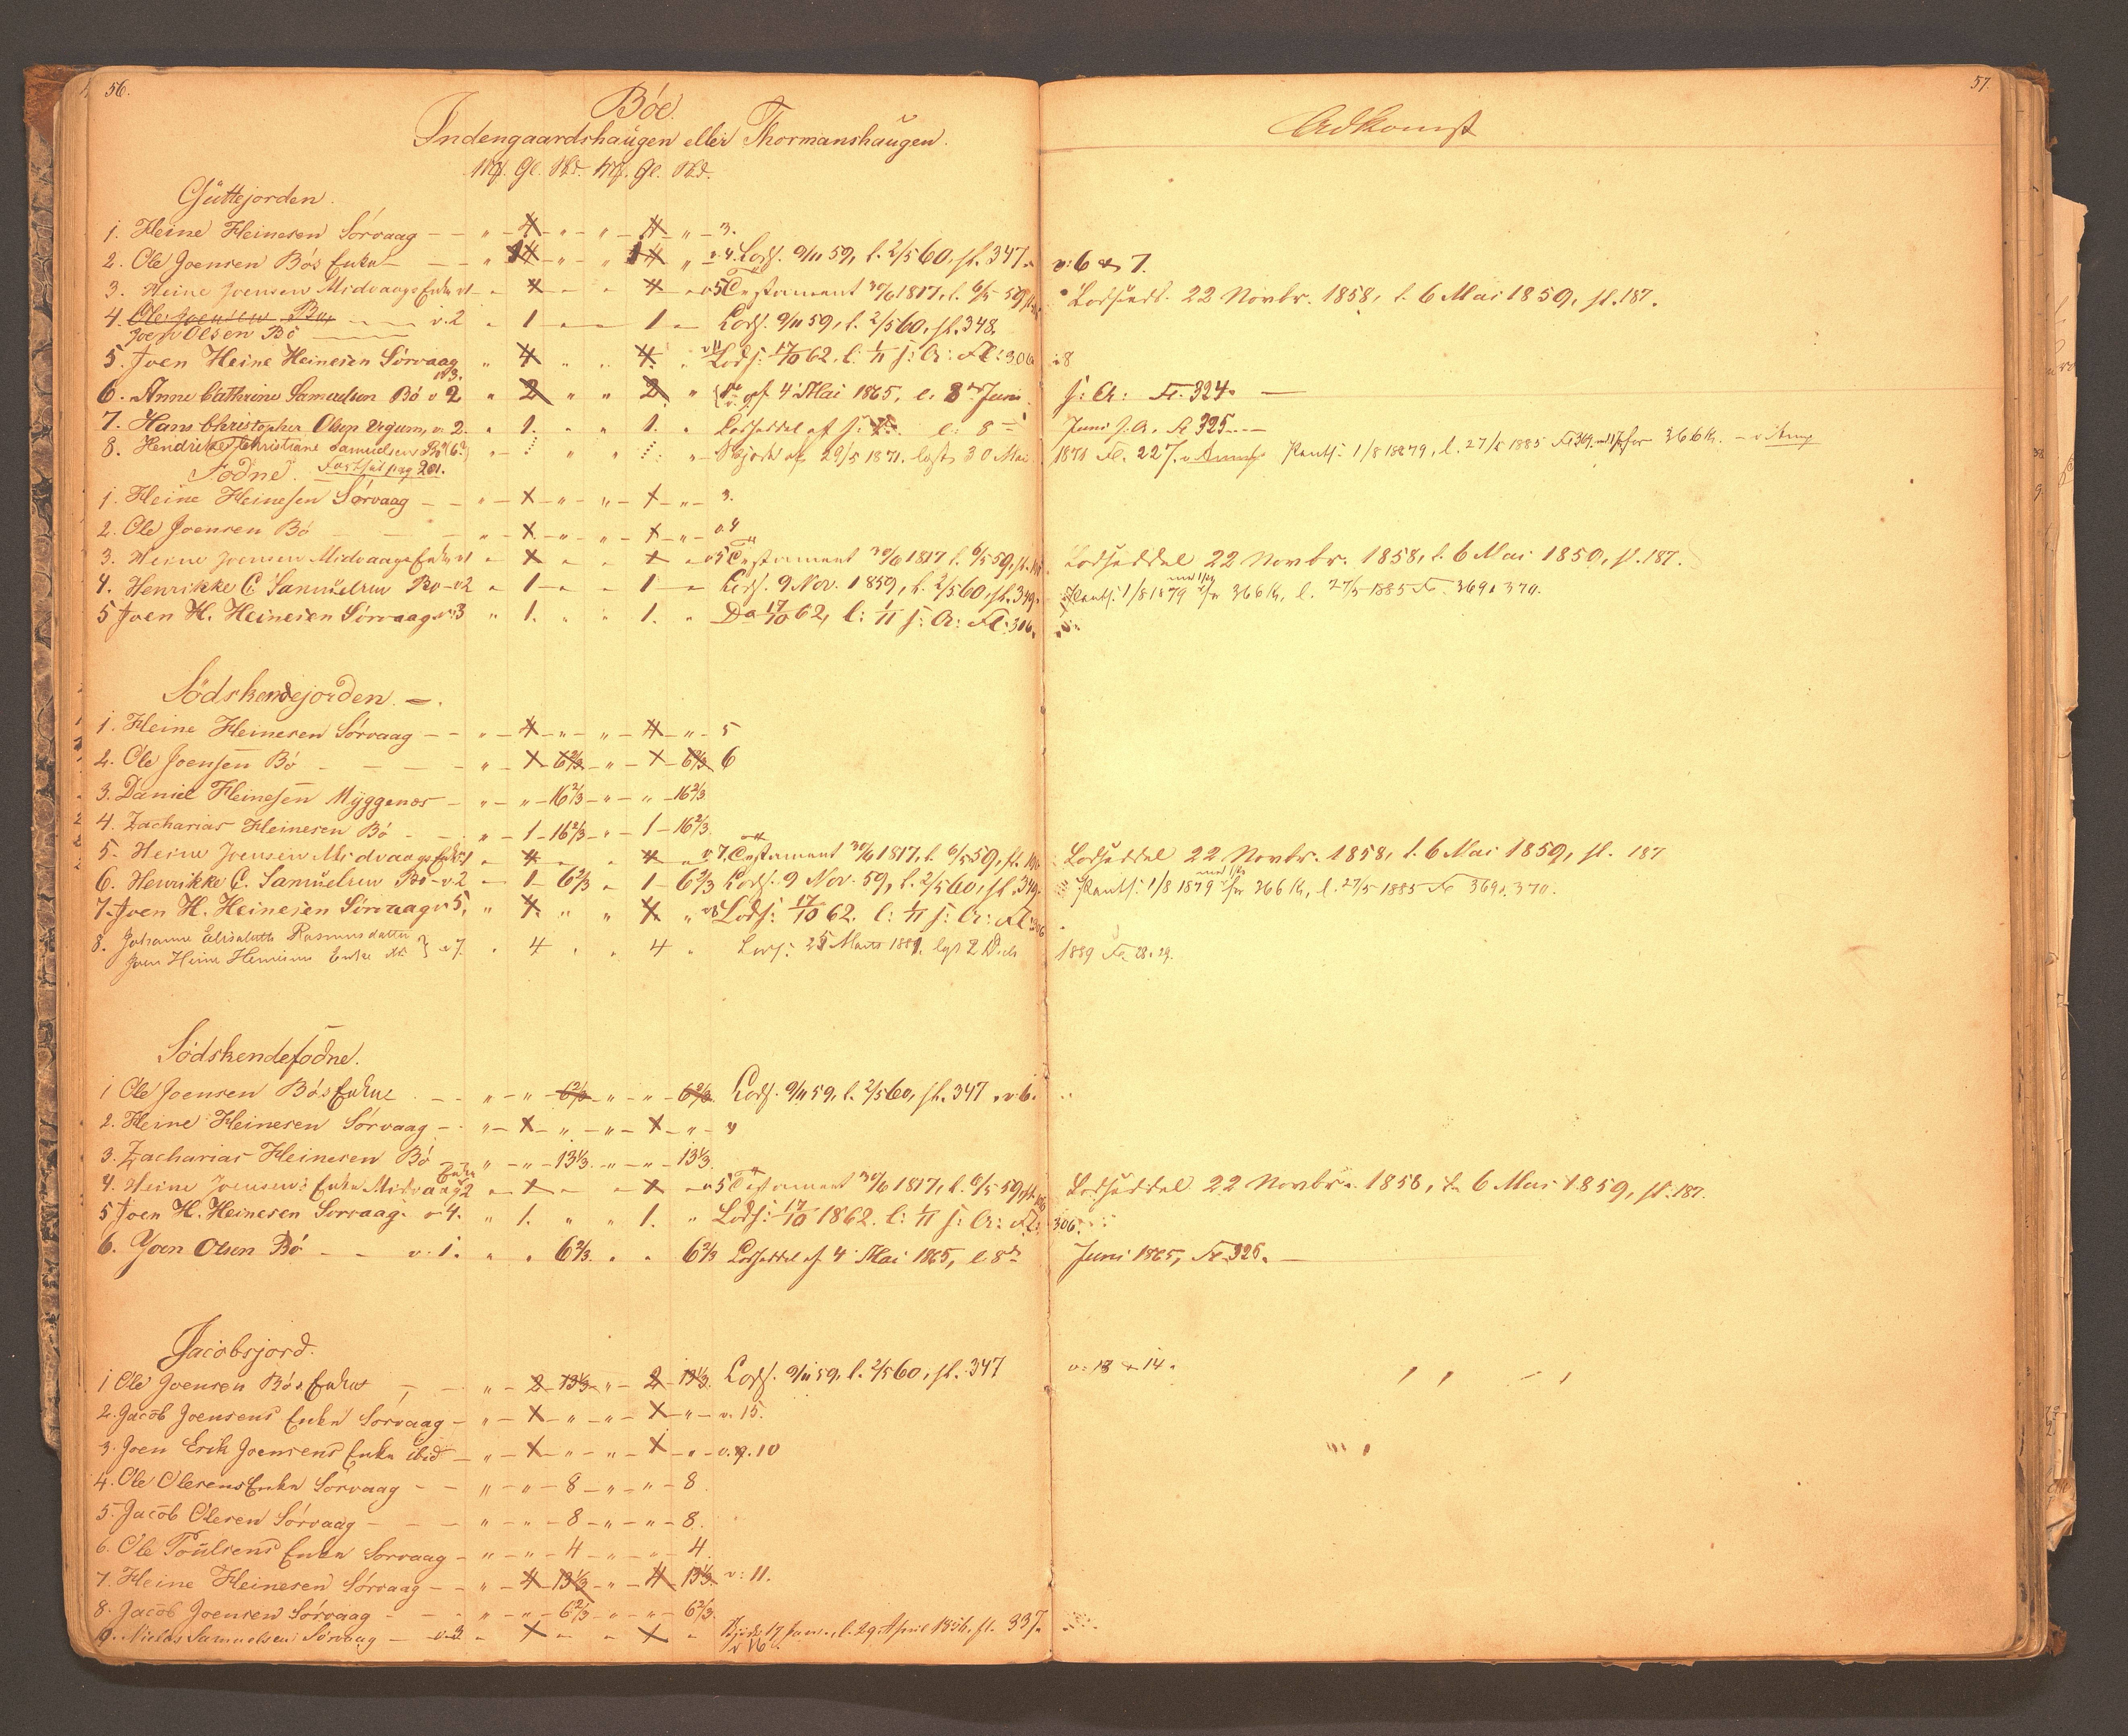 56.
57.
Böe.
Indengaardshaugen eller Thormanshaugen.
Adkomst
Mk. Gl. Skd. Mk. Gl. Skd.
Guttejorden.
1. Heine Heinesen Sörvaag — — „ 4 „ „ 4 „ — 3.
2. Ole Joensen Bös Enke — — „ „ „ v. 4. Lods. 9/11 59, l. 2/5 60, fl. 347. v: 6 & 7.
3. Heine Joensen Midvaags Enke v1 — 4 — 4 — v5 Testament 30/6 1817, l. 6/5 59, Lodsedl. 22 Novbr. 1858, l. 6 Mai 1859, fl. 187.
4. Ole Joensen Bö — v. 2 „ 1 „ — 1 — Lods. 9/11 59, l. 2/5 60, fl. 348.
Joen Olsen Bö
5. Joen Heine Heinesen Sörvaag v3. „ 4 „ „ 4 „ Lods: 17/10 62, l: 1/11 s: A: Fl: 306 :8
6. Anne Cathrine Samuelsen Bö v 2 „ 2 „ „ 2 „ af 4 Mai 1865, l. 8de Juni s: A: Fl. 324. —
7. Hans Christopher Olsen v. 2. „ 1. „ „ 1. „ Lodseddel af l: 8 Juni s. A. Fl 325.
8. Hendrikke Christiane Samuelsen Bö Skjöde af 29/5 1871. lyst 30 Mai 1871 Fl. 227. Pants: 1/8 1879, l. 27/5 1885 Fl 369. for 366 Kr.
Fodne. Fortsat pag 201.
1. Heine Heinesen Sörvaag — — „ — X — „ „ — X — „ — 3.
2. Ole Joensen Bö — X — „ „ — X — „ — v. 4
3. Heine Joensen Midvaags Enke v1 — X — „ — X — v5 Testament 30/6 1817, l. 6/5 59, Lodseddel 22 Novbr. 1858, l. 6 Mai 1850, fl. 187.
4. Henrikke C. Samuelsen Bö v2 „ 1 — „ 1 — Lods. 9 Nov. 1859, l. 2/5 60, fl. 349. Pants: 1/8 1879 for 366 Kr, l. 27/5 1885 Fl. 369 & 370.
5 Joen H. Heinesen Sörvaag v:3 „ 1. „ „ 1. „ Do 17/10 62, l: 1/11 s: A: Fl: 306.
Södskendejorden. —.
1. Heine Heinesen Sörvaag — — „ — 4 — „ — „ — 4 — „ — 5
2. Ole Joensen Bö — — „ — X — 6 2/3 — „ — X — 6 2/3 6
3. Daniel Heinesen Myggenæs — „ — „ — 16 2/3 — „ — „ — 16 2/3
4. Zacharias Heinesen Bö — „ — 1 — 16 2/3 — „ — 1 — 16 2/3
5. Heine Joensen Midvaags Enke v1 — 4 — 4 — v 7. Testament 30/6 1817, l. 6/5 59, fl. Lodseddel 22 Novbr. 1858, l. 6 Mai 1859, fl. 187
6. Henrikke C. Samuelsen Bö v2 — 1 — 6 2/3 „ 1 — 6 2/3 Lods. 9 Nov. 59, l. 2/5 60, fl. 349. Pants: 1/8 1879 for 366 Kr, l. 27/5 1885 Fl 369 & 370.
7. Joen H. Heinesen Sörvaag v 5. „ 4. „ „ 4. „ v8 Lods: 17/10 62. l: 1/11 s: A: Fl: 306
8. Johanne Elisabeth Rasmusdatter
Joen Heine Heinesens Enke } v 7. „ 4 „ „ 4 „ Lods: 25 Marts 1889. lyst 2 1889 Fl. 28. 29.
Södskendefodne.
1 Ole Joensen Bös Enke — — „ — „ — 6 2/3 — „ — „ — 6 2/3 Lods. 9/11 59, l. 2/5 60, fl. 347. v. 6.
2. Heine Heinesen Sörvaag — „ — X — „ — „ — X — „ — 4
3. Zacharias Heinesen Bö „ — „ — 13 1/3. — „ — „ — 13 1/3.
4. Heine Joensens Enke Midvaag v2 — X — „ — X — v5 Testament 30/6 1817, l. 6/5 59, fl. Lodseddel 22 Novbr. 1858, l. 6 Mai 1859, fl. 187.
5 Joen H. Heinesen Sörvaag. v 4. „ 1. „ „ 1. „ Lods: 17/10 1862. l: 1/11 s: A: Fl: 306.
6. Joen Olsen Bö — — v: 1. „ „ 6 2/3. „ „ 6 2/3 Lodseddel af 4 Mai 1865, l 8de Juni 1865, Fl. 326. —
Jacobsjord.
1 Ole Joensen Bös Enke — „ — 2 — 13 1/3 — „ — 2 — 13 1/3. Lods. 9/11 59, l. 2/5 60, fl. 347 v: 13 & 14.
2. Jacob Joensens Enke Sörvaag — „ — X — „ — „ — X — „ — v. 15.
3. Joen Erik Joensens Enke ibid — „ — X — „ — „ — X — „ — v. 10
4. Ole Olesens Enke Sörvaag — — „ — „ — 8 — „ — „ — 8.
5. Jacob Olesen Sörvaag — — „ — „ — 8 — „ — „ — 8.
6. Ole Poulsens Enke Sörvaag — „ — „ — 4 — „ — „ — 4
7. Heine Heinesen Sörvaag — — „ — 4 — 13 1/3 — „ — 4 — 13 1/3. v: 11.
8. Jacob Joensen Sörvaag — — „ — „ — 6 2/3 — „ — „ — 6 2/3.
9. Niclas Samuelsen Sörvaag — v. 3 „ X — „ — X — „ Skjöde 17 Janv., l. 29 April 1856, fl. 337.
v 16.